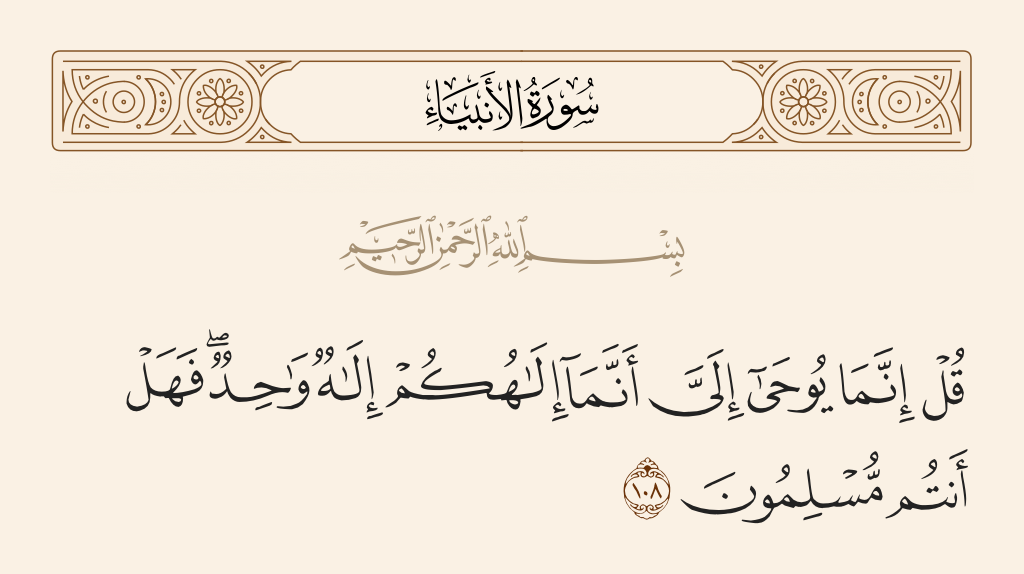 سُورَةُ الأَنبِيَاءِ
بِسْمِ ٱللَّهِ ٱلرَّحْمَٰنِ ٱلرَّحِيمِ
قُلْ إِنَّمَا يُوحَىٰٓ إِلَىَّ أَنَّمَآ إِلَٰهُكُمْ إِلَٰهٌ وَٰحِدٌ ۖ فَهَلْ
أَنتُم مُّسْلِمُونَ ١٠٨